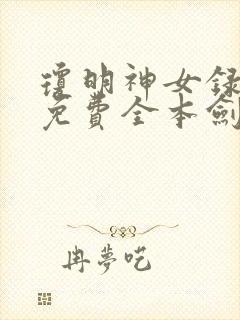 瓊明神女錄
免費全本劍
冉夢呓